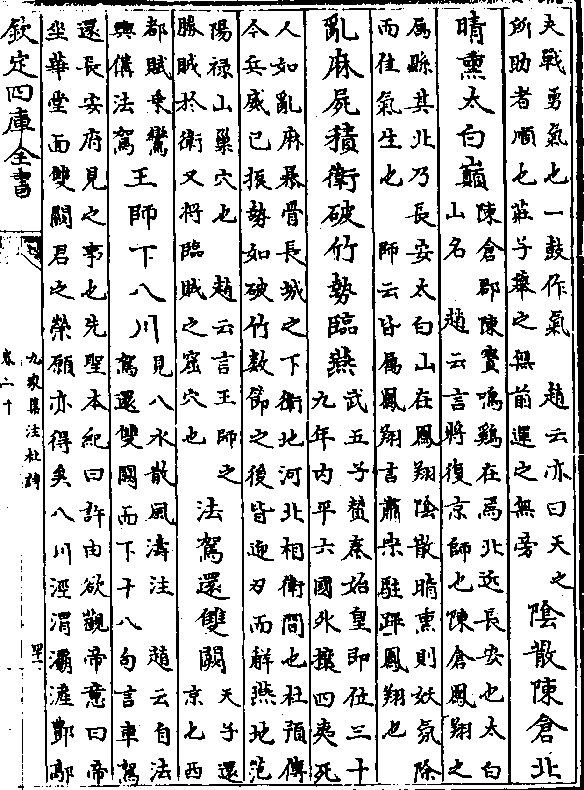 夫戰勇氣也一鼓作氣　趙云亦曰天之
所助者順也莊子舉之無前運之無旁
陰散陳倉北
晴熏太白巔
陳倉郡陳寳鳴鷄在焉北近長安也太白
山名　趙云言將復京師也陳倉鳳翔之
屬縣其北乃長安太白山在鳳翔陰散晴熏則妖氛除
而佳氣生也　師云皆屬鳳翔言肅宗駐蹕鳳翔也
亂麻屍積衛破竹勢臨燕
武五子賛秦始皇即位三十
九年内平六國外攘四夷死
人如亂麻暴骨長城之下衛地河北相衛間也杜預傳
今兵威已振勢如破竹數節之後皆迎刃而解燕地范
陽祿山巢穴也　趙云言王師之
勝賊於衛又將臨賊之窟穴也
法駕還雙闕
天子還
京也西
都賦乗鸞
輿備法駕
王師下八川
見八水散風濤注　趙云自法
駕還雙闕而下十八句言車駕
還長安府見之事也先聖本紀曰許由欲觀帝意曰帝
坐華堂而雙闕君之榮願亦得矣八川涇渭灞滻酆鄗
欽定四庫全書
九家集注杜詩
卷二十